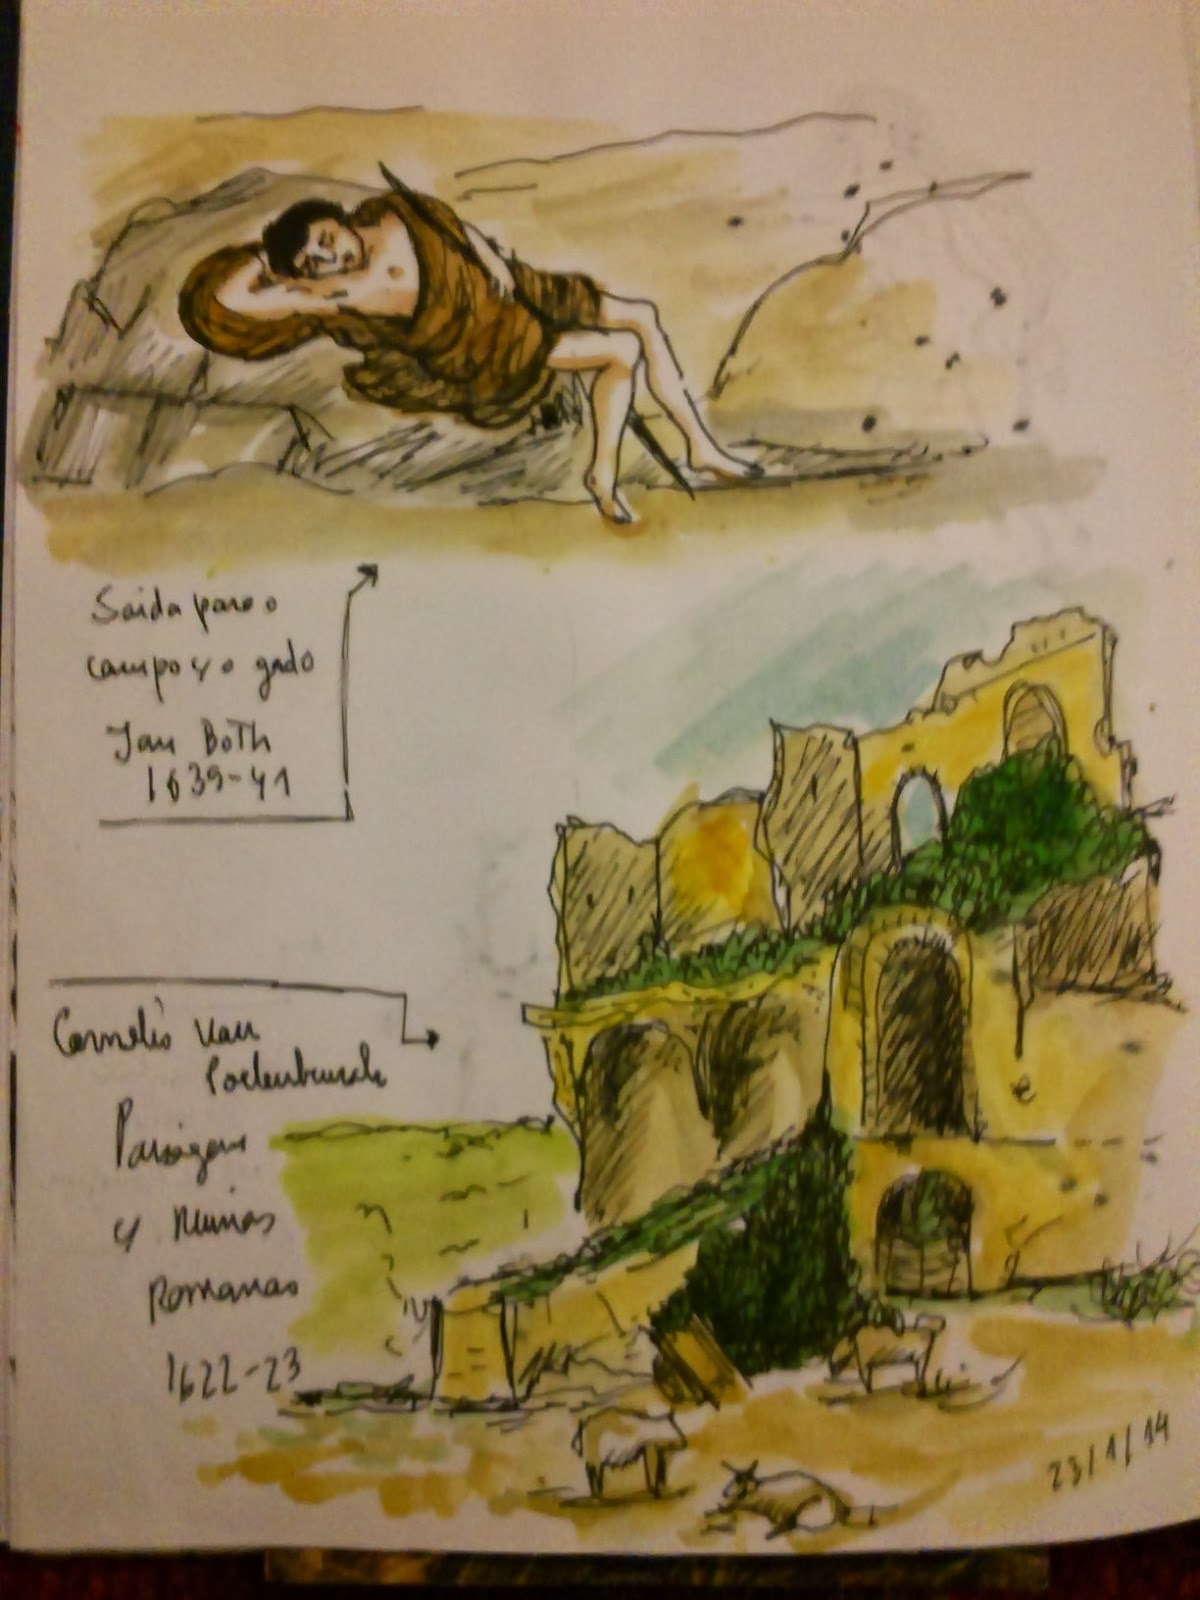 Saida para o
campo y o gado
Jan Both
1639-41
Cornelis van
Poelenburch
Paisagem
y Ruinas
Romanas
1622-23
23/1/14